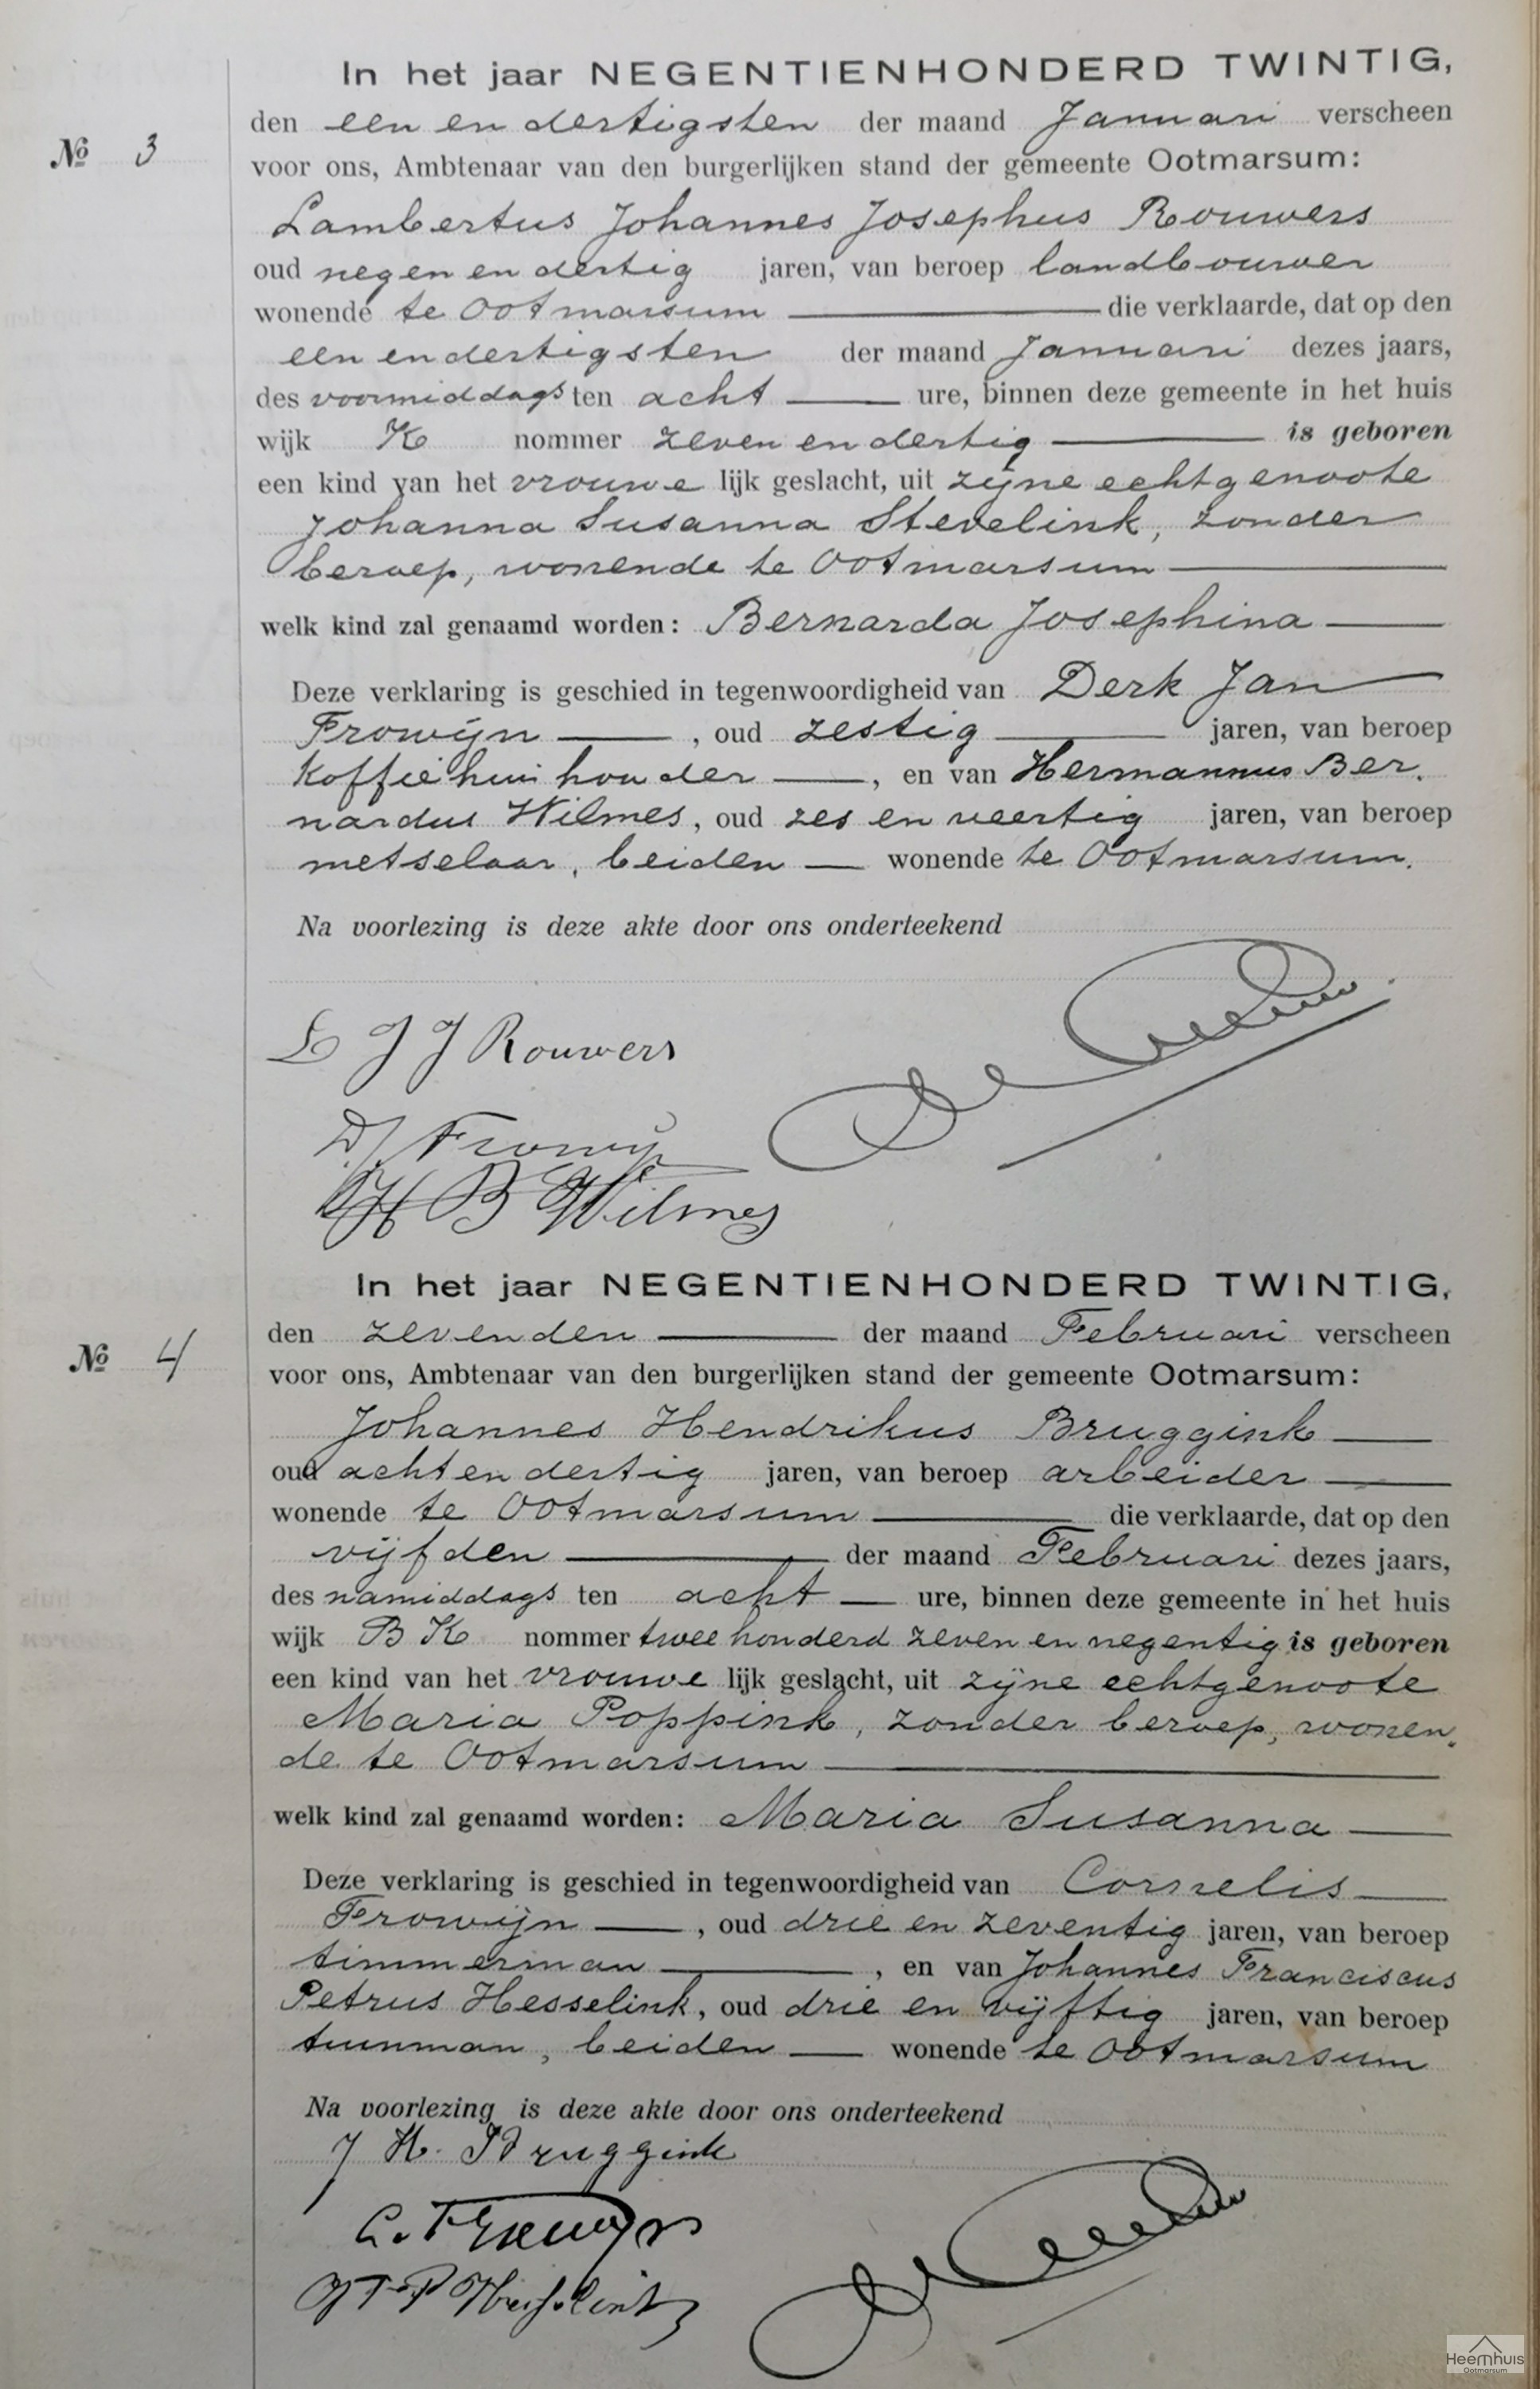 In het jaar NEGENTIENHONDERD TWINTIG,
den een en dertigsten der maand Januari verscheen
№ 3
voor ons, Ambtenaar van den burgerlijken stand der gemeente Ootmarsum:
Lambertus Johannes Josephus Rouwers
oud negen en dertig jaren, van beroep landbouwer
wonende te Ootmarsum — die verklaarde, dat op den
een en dertigsten der maand Januari dezes jaars,
des voormiddags ten acht — ure, binnen deze gemeente in het huis
wijk K nommer zeven en dertig — is geboren
een kind van het vrouwe lijk geslacht, uit zijne echtgenoote
Johanna Susanna Stevelink, zonder
beroep, wonende te Ootmarsum —
welk kind zal genaamd worden: Bernarda Josephina —
Deze verklaring is geschied in tegenwoordigheid van Derk Jan
Frowijn — , oud zestig — jaren, van beroep
Koffiehuishouder — , en van Hermannus Ber.
nardus Wilmes, oud zes en veertig jaren, van beroep
metselaar, beiden — wonende te Ootmarsum.
Na voorlezing is deze akte door ons onderteekend
L J J Rouwers
DJ Frowijn
H B Wilmes
In het jaar NEGENTIENHONDERD TWINTIG,
den zevenden — der maand Februari verscheen
№ 4
voor ons, Ambtenaar van den burgerlijken stand der gemeente Ootmarsum:
Johannes Hendrikus Bruggink —
oud acht en dertig jaren, van beroep arbeider —
wonende te Ootmarsum — die verklaarde, dat op den
vijfden — der maand Februari dezes jaars,
des namiddags ten acht — ure, binnen deze gemeente in het huis
wijk B K nommer twee honderd zeven en negentig is geboren
een kind van het vrouwe lijk geslacht, uit zijne echtgenoote
Maria Poppink, zonder beroep, wonen.
de te Ootmarsum —
welk kind zal genaamd worden: Maria Susanna —
Deze verklaring is geschied in tegenwoordigheid van Cornelis —
Frowijn — , oud drie en zeventig jaren, van beroep
timmerman — , en van Johannes Franciscus
Petrus Hesselink, oud drie en vijftig jaren, van beroep
tuinman, beiden — wonende te Ootmarsum
Na voorlezing is deze akte door ons onderteekend
J H. Bruggink
C. Frowijn
J F P Hesselink
Heemhuis
Ootmarsum